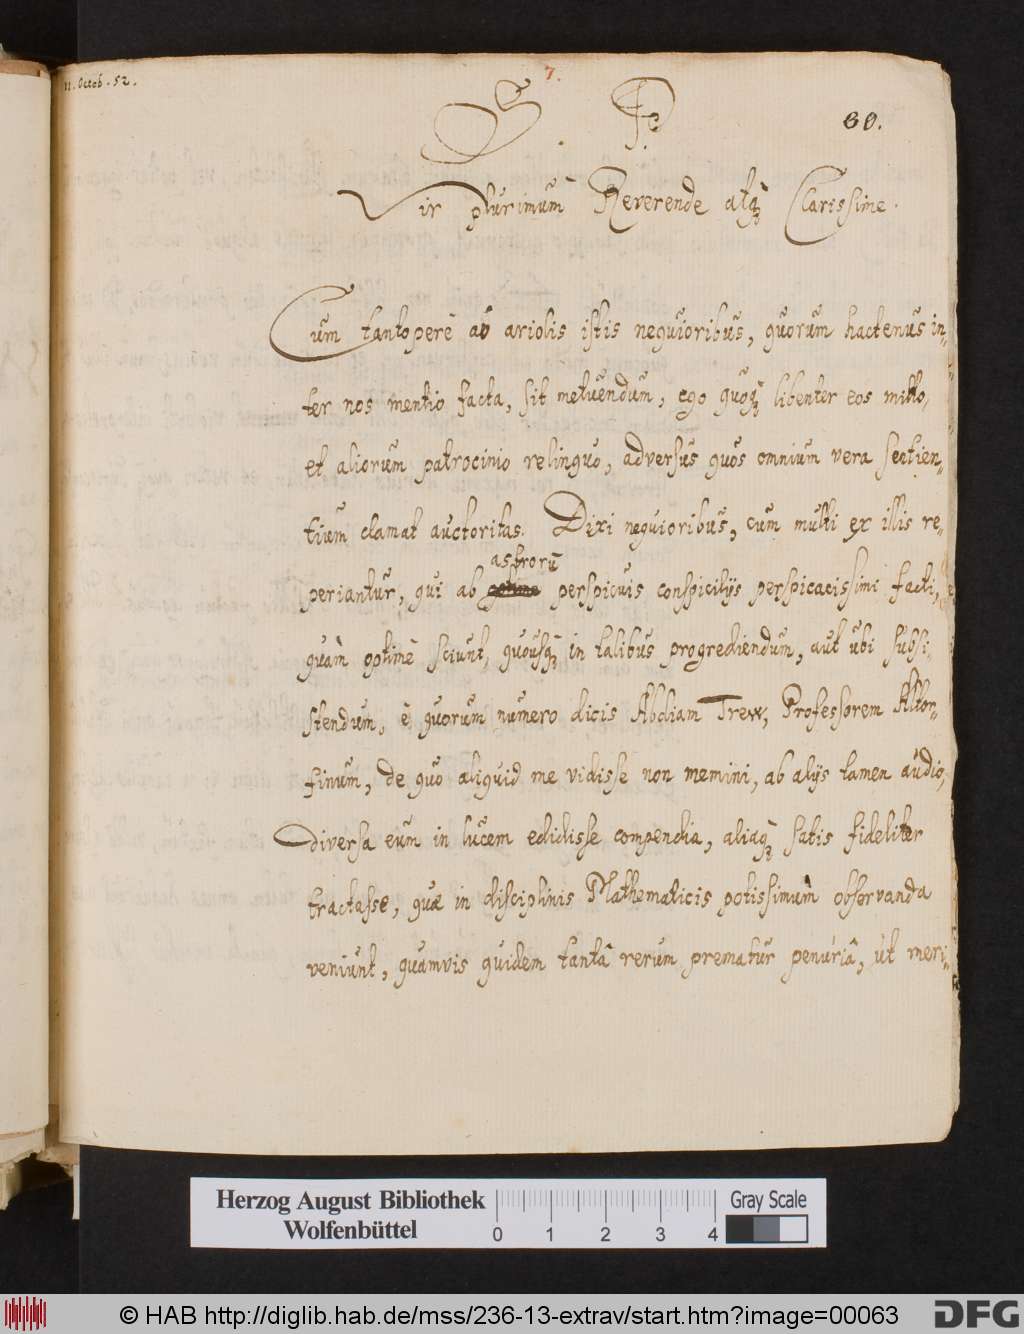 11. Octob. 52.
7.
S. P.
60.
Vir plurimùm Reverende atq; Clarissime.
Cum tantoperè ab ariolis istis nequioribus, quorum hactenus in-
ter nos mentio facta, sit metuendum, ego quoq; libenter eos mitto,
et aliorum patrocinio relinquo, adversus quos omnium vera sectien-
tium clamat auctoritas. Dixi nequioribus, cum multi ex illis re-
astrorū
periantur, qui ab perspicuis conspicilijs perspicacissimi facti,
quàm optimè sciunt, quousq; in talibus progrediendum, aut ubi subsi-
stendum, è quorum numero dicis Abdiam Trew, Professorem Altor-
finum, de quo aliquid me vidisse non memini, ab alijs tamen audio,
diversa eum in lucem edidisse compendia, aliaq; satis fideliter
tractasse, quæ in disciplinis Mathematicis potissimùm observanda
veniunt, quamvis quidem tantâ rerum prematur penuriâ, út meri-
Herzog August Bibliothek
Wolfenbüttel
0 1 2 3 4
Gray Scale
© HAB http://diglib.hab.de/mss/236-13-extrav/start.htm?image=00063
DFG